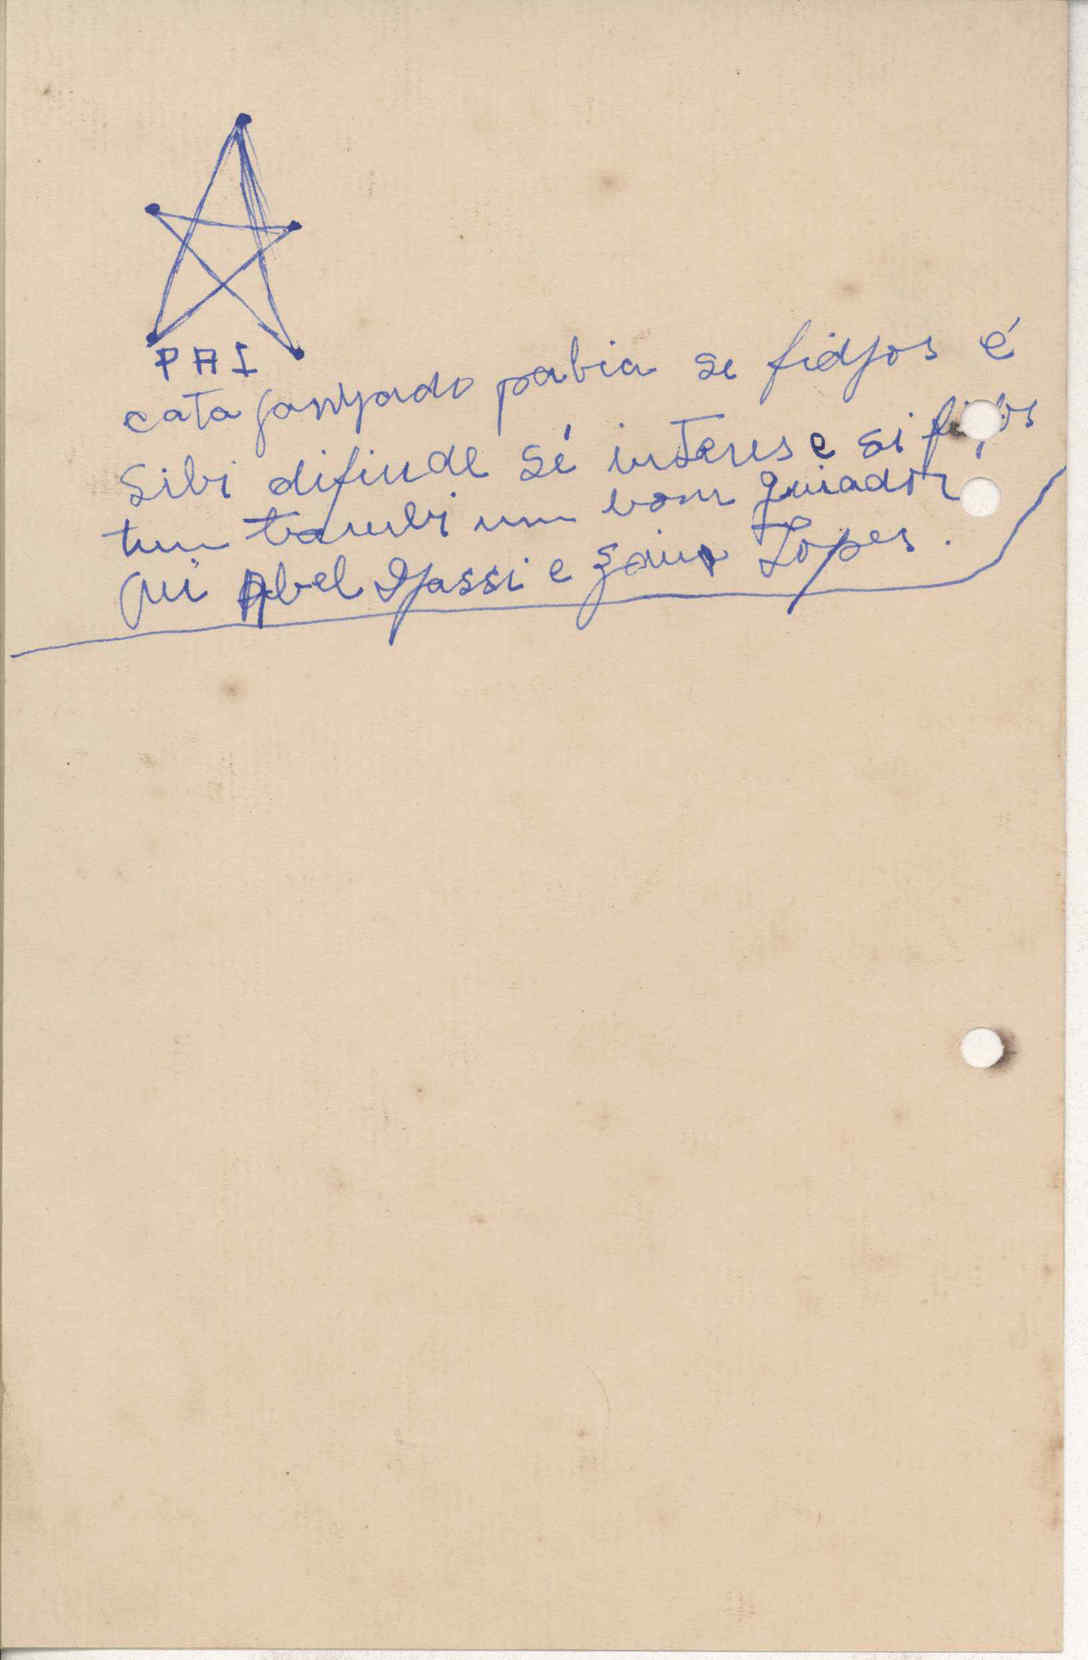 PAI
cata ganyado pabia se fidjos é
sibi difinde sé interese si
tem tambi um bom guiador
qui Abel Djassi e Lopes.